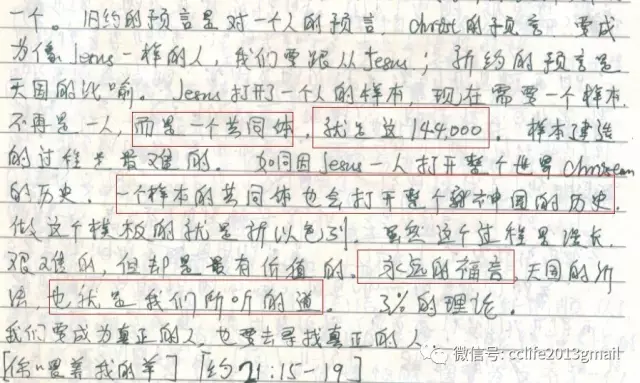 一个。旧约的预言是对一个人的预言,christ的预言,要成
为像Jesus一样的人,我们要跟从Jesus;新约的预言是
天国的比喻。Jesus打开了一个人的样本,现在需要一个样本,
不再是一人,而是一个共同体,就是这144,000。样本建造
的过程是最难的。如同因Jesus一人打开整个世界Christian
的历史。一个样本的共同体也会打开整个新六中国的历史。
做这个样板的就是新以色列。虽然这个过程是漫长,
艰难的,但却是最有价值的。永远的福音,天国的
法,也就是我们所听的道。3%的理论。
我们要成为真正的人,也要去寻找真正的人
[你喂养我的羊] [约21:15-19]
微信号: cclife2013gmail